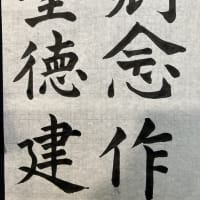 念作
聖徳建